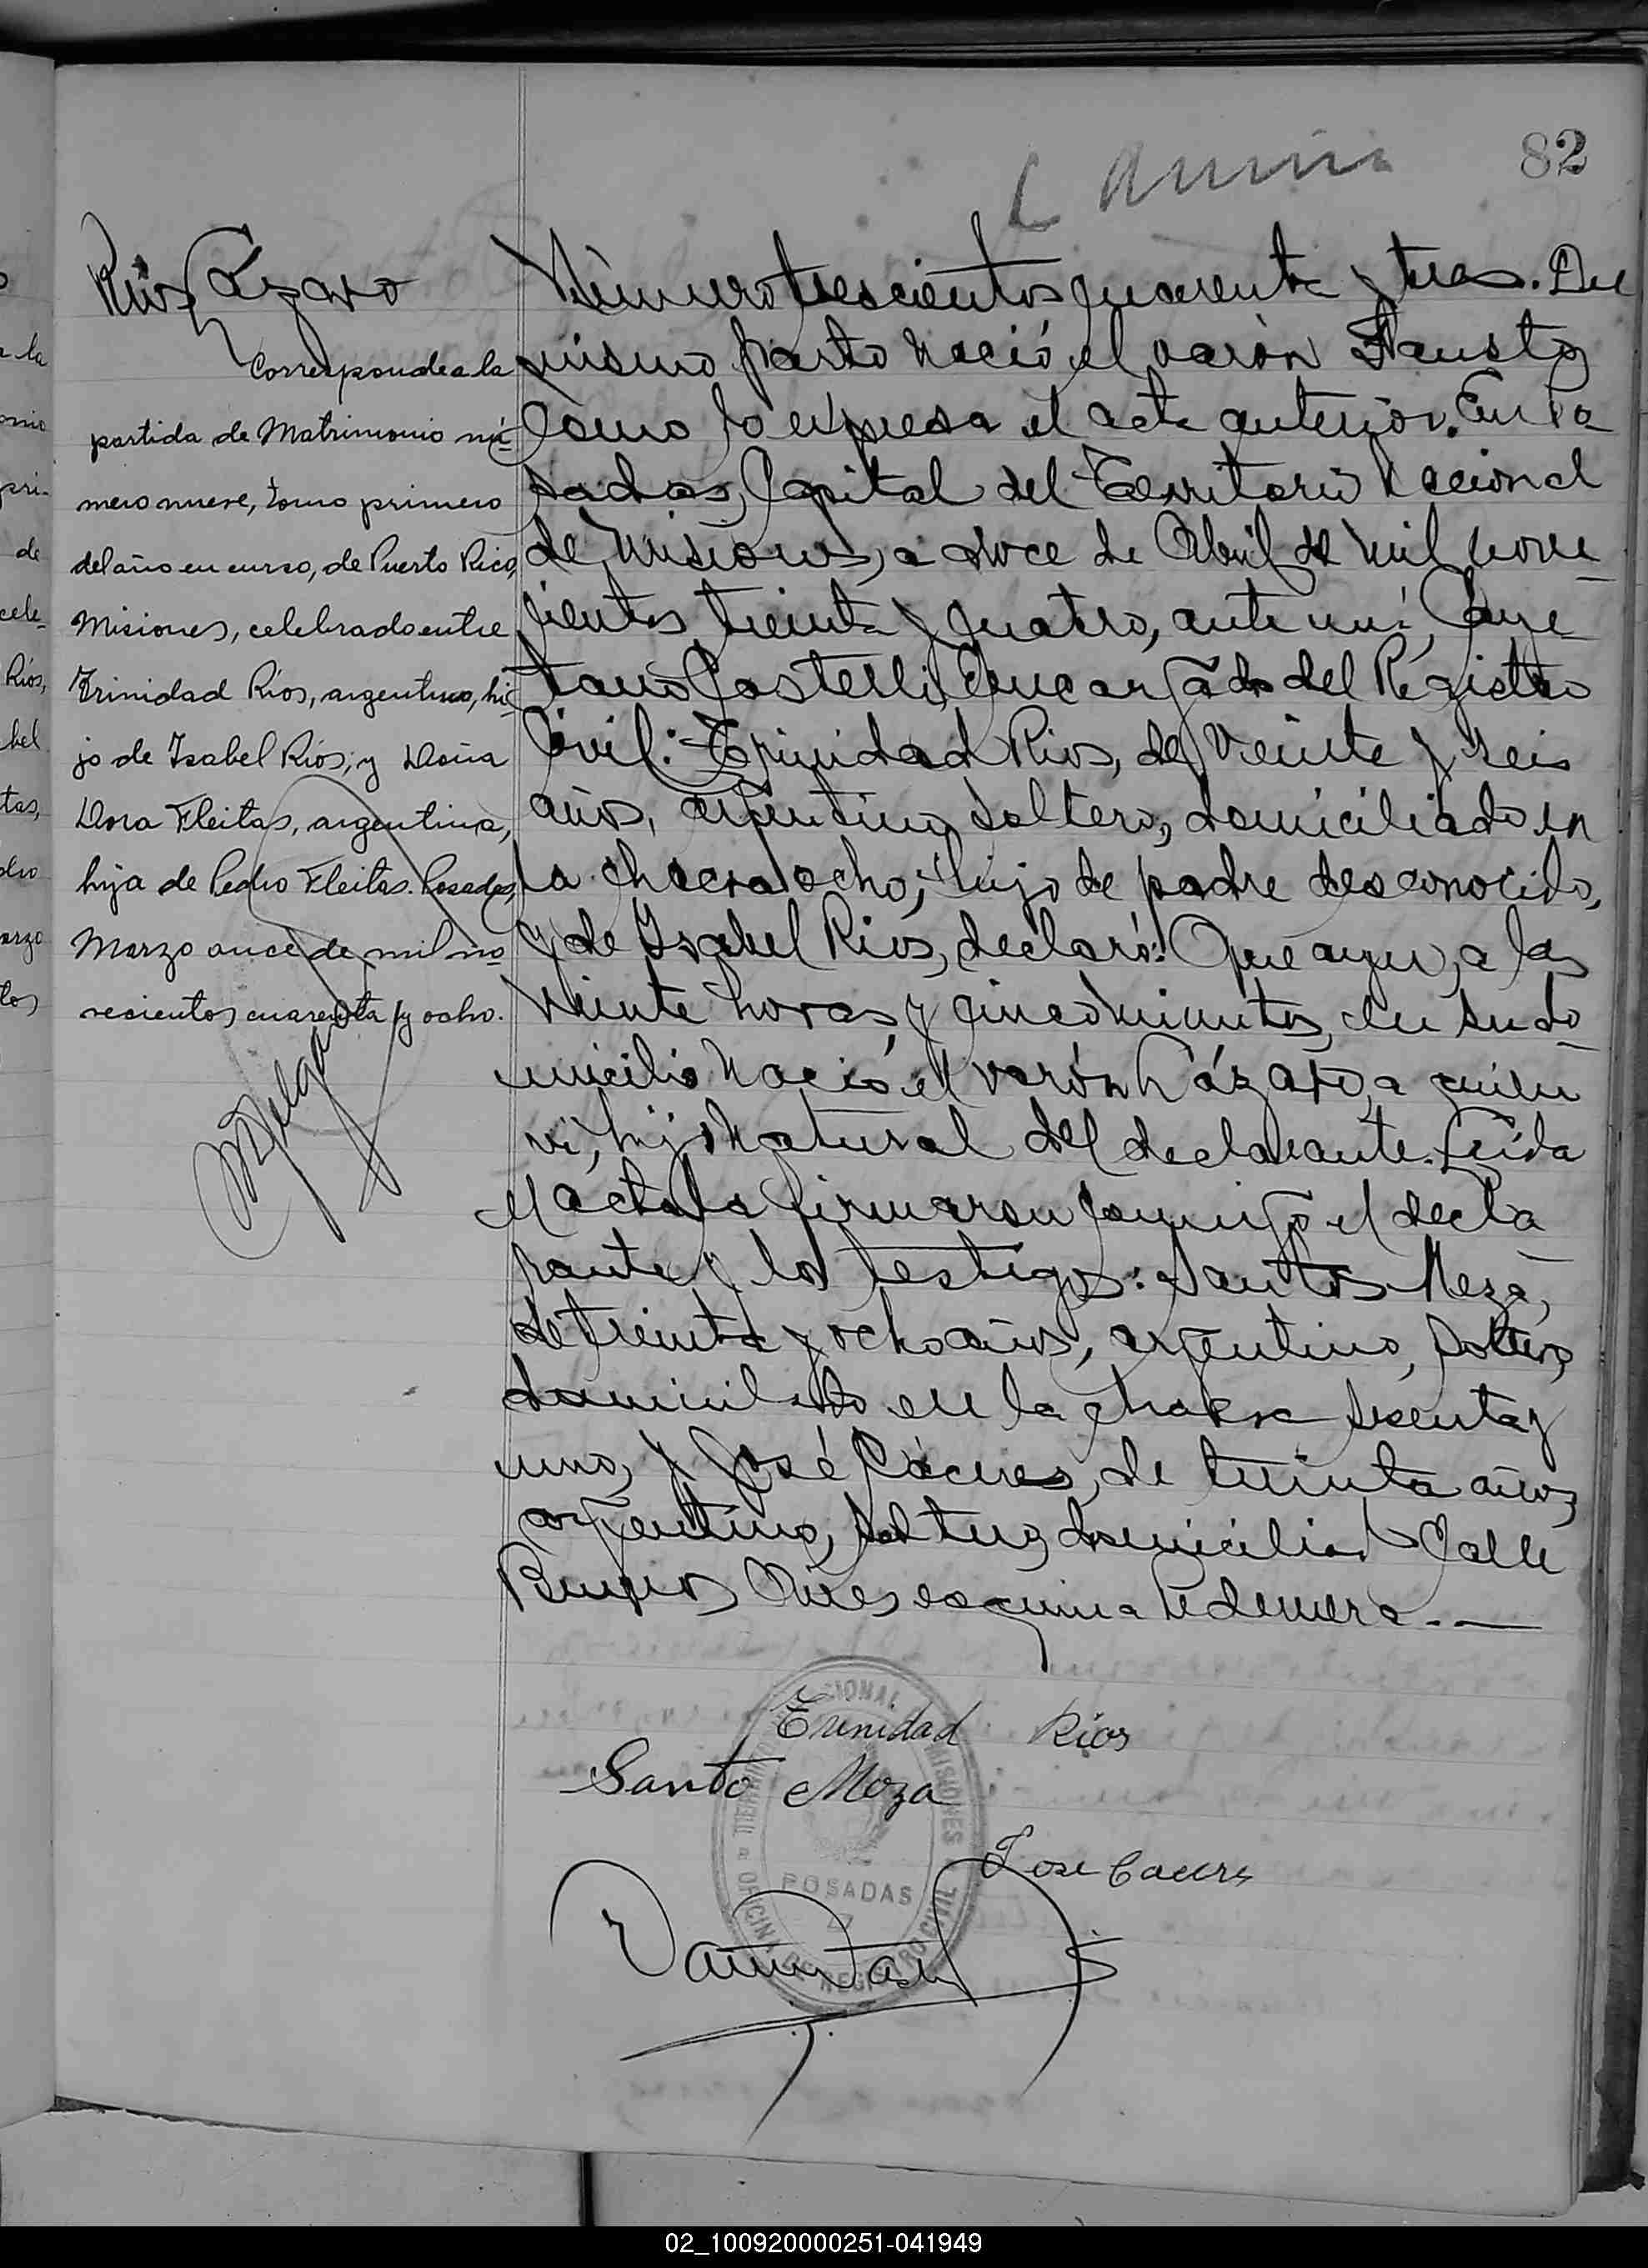 82
Ríos Lázaro
Corresponde a la
partida de Matrimonio nú-
mero nueve, tomo primero
del año en curso, de Puerto Rico,
Misiones, celebrado entre
Trinidad Ríos, argentino, hi-
jo de Isabel Ríos; y Doña
Dora Fleitas, argentina,
hija de Pedro Fleitas. Posadas,
Marzo once de mil no-
vecientos cuarenta y ocho.
Número trescientos cuarenta y tres. Del
mismo parto nació el varón Fausto
como lo expresa el acta anterior. En Po
sadas, Capital del Territorio Nacional
de Misiones, a doce de Abril de mil nove-
cientos treinta y cuatro, ante mí, Caye
tano Castelli, Encargado del Registro
Civil: Trinidad Rios, de veinte y seis
años, argentino, soltero, domiciliado en
la chacra ocho; hijo de padre desconocido,
y de Isabel Rios, declaró: Que ayer, a las
veinte horas y cinco minutos, en su do-
micilio nació el varón Lázaro, a quien
vi, hijo natural del declarante. Leída
el acta la firmaron conmigo el decla-
rante y los testigos: Santos Meza,
de treinta y ocho años, argentino, soltero,
domiciliado en la chacra sesenta y
uno, y José Cáceres, de treinta años,
argentino, soltero, domiciliado Calle
Buenos Aires esquina Pedernera.—
Trinidad Rios
Santo Meza
Jose Caceres
POSADAS
OFICINA DE REGISTRO CIVIL
MISIONES
02_100920000251-041949